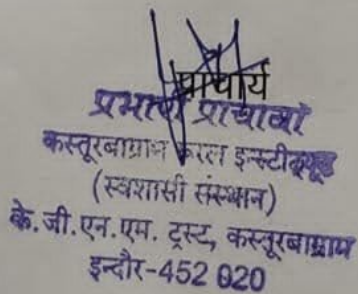 प्राचार्य
प्रभारी प्राचार्या
कस्तूरबाग्राम रूरल इन्स्टीट्यूट
(स्वशासी संस्थान)
के.जी.एन.एम. ट्रस्ट, कस्तूरबाग्राम
इन्दौर-452 020